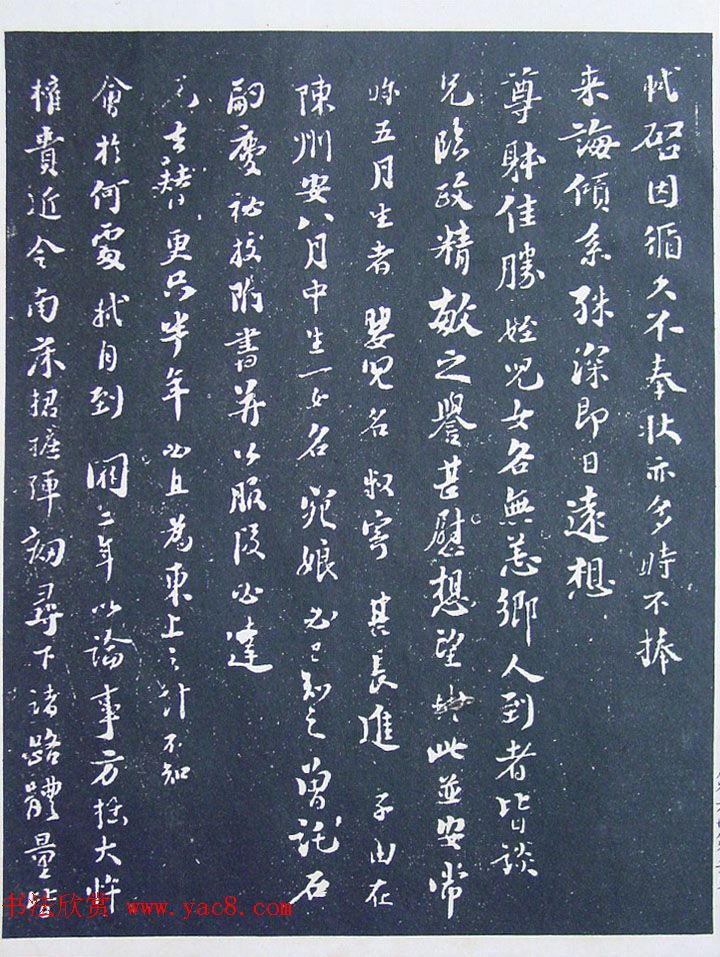 軾啓因循久不奉狀亦多時不捧
来誨傾系殊深即日遠想
尊躰佳勝姪兒女各無恙鄉人到者皆談
兄臨政精敏之譽甚慰想望此並安常
五月生者嬰兒名叔寄甚長進子由在
陳州安八月中生一女名宛娘必已知之曾託石
嗣慶祕挍附書并公服段必達
兄去替更只半年必且為東上之計不知
會於何處軾自到闕二年以論事方拙大忤
權貴近令南床捃摭彈劾尋下諸路體量
书法欣赏 www.yac8.com